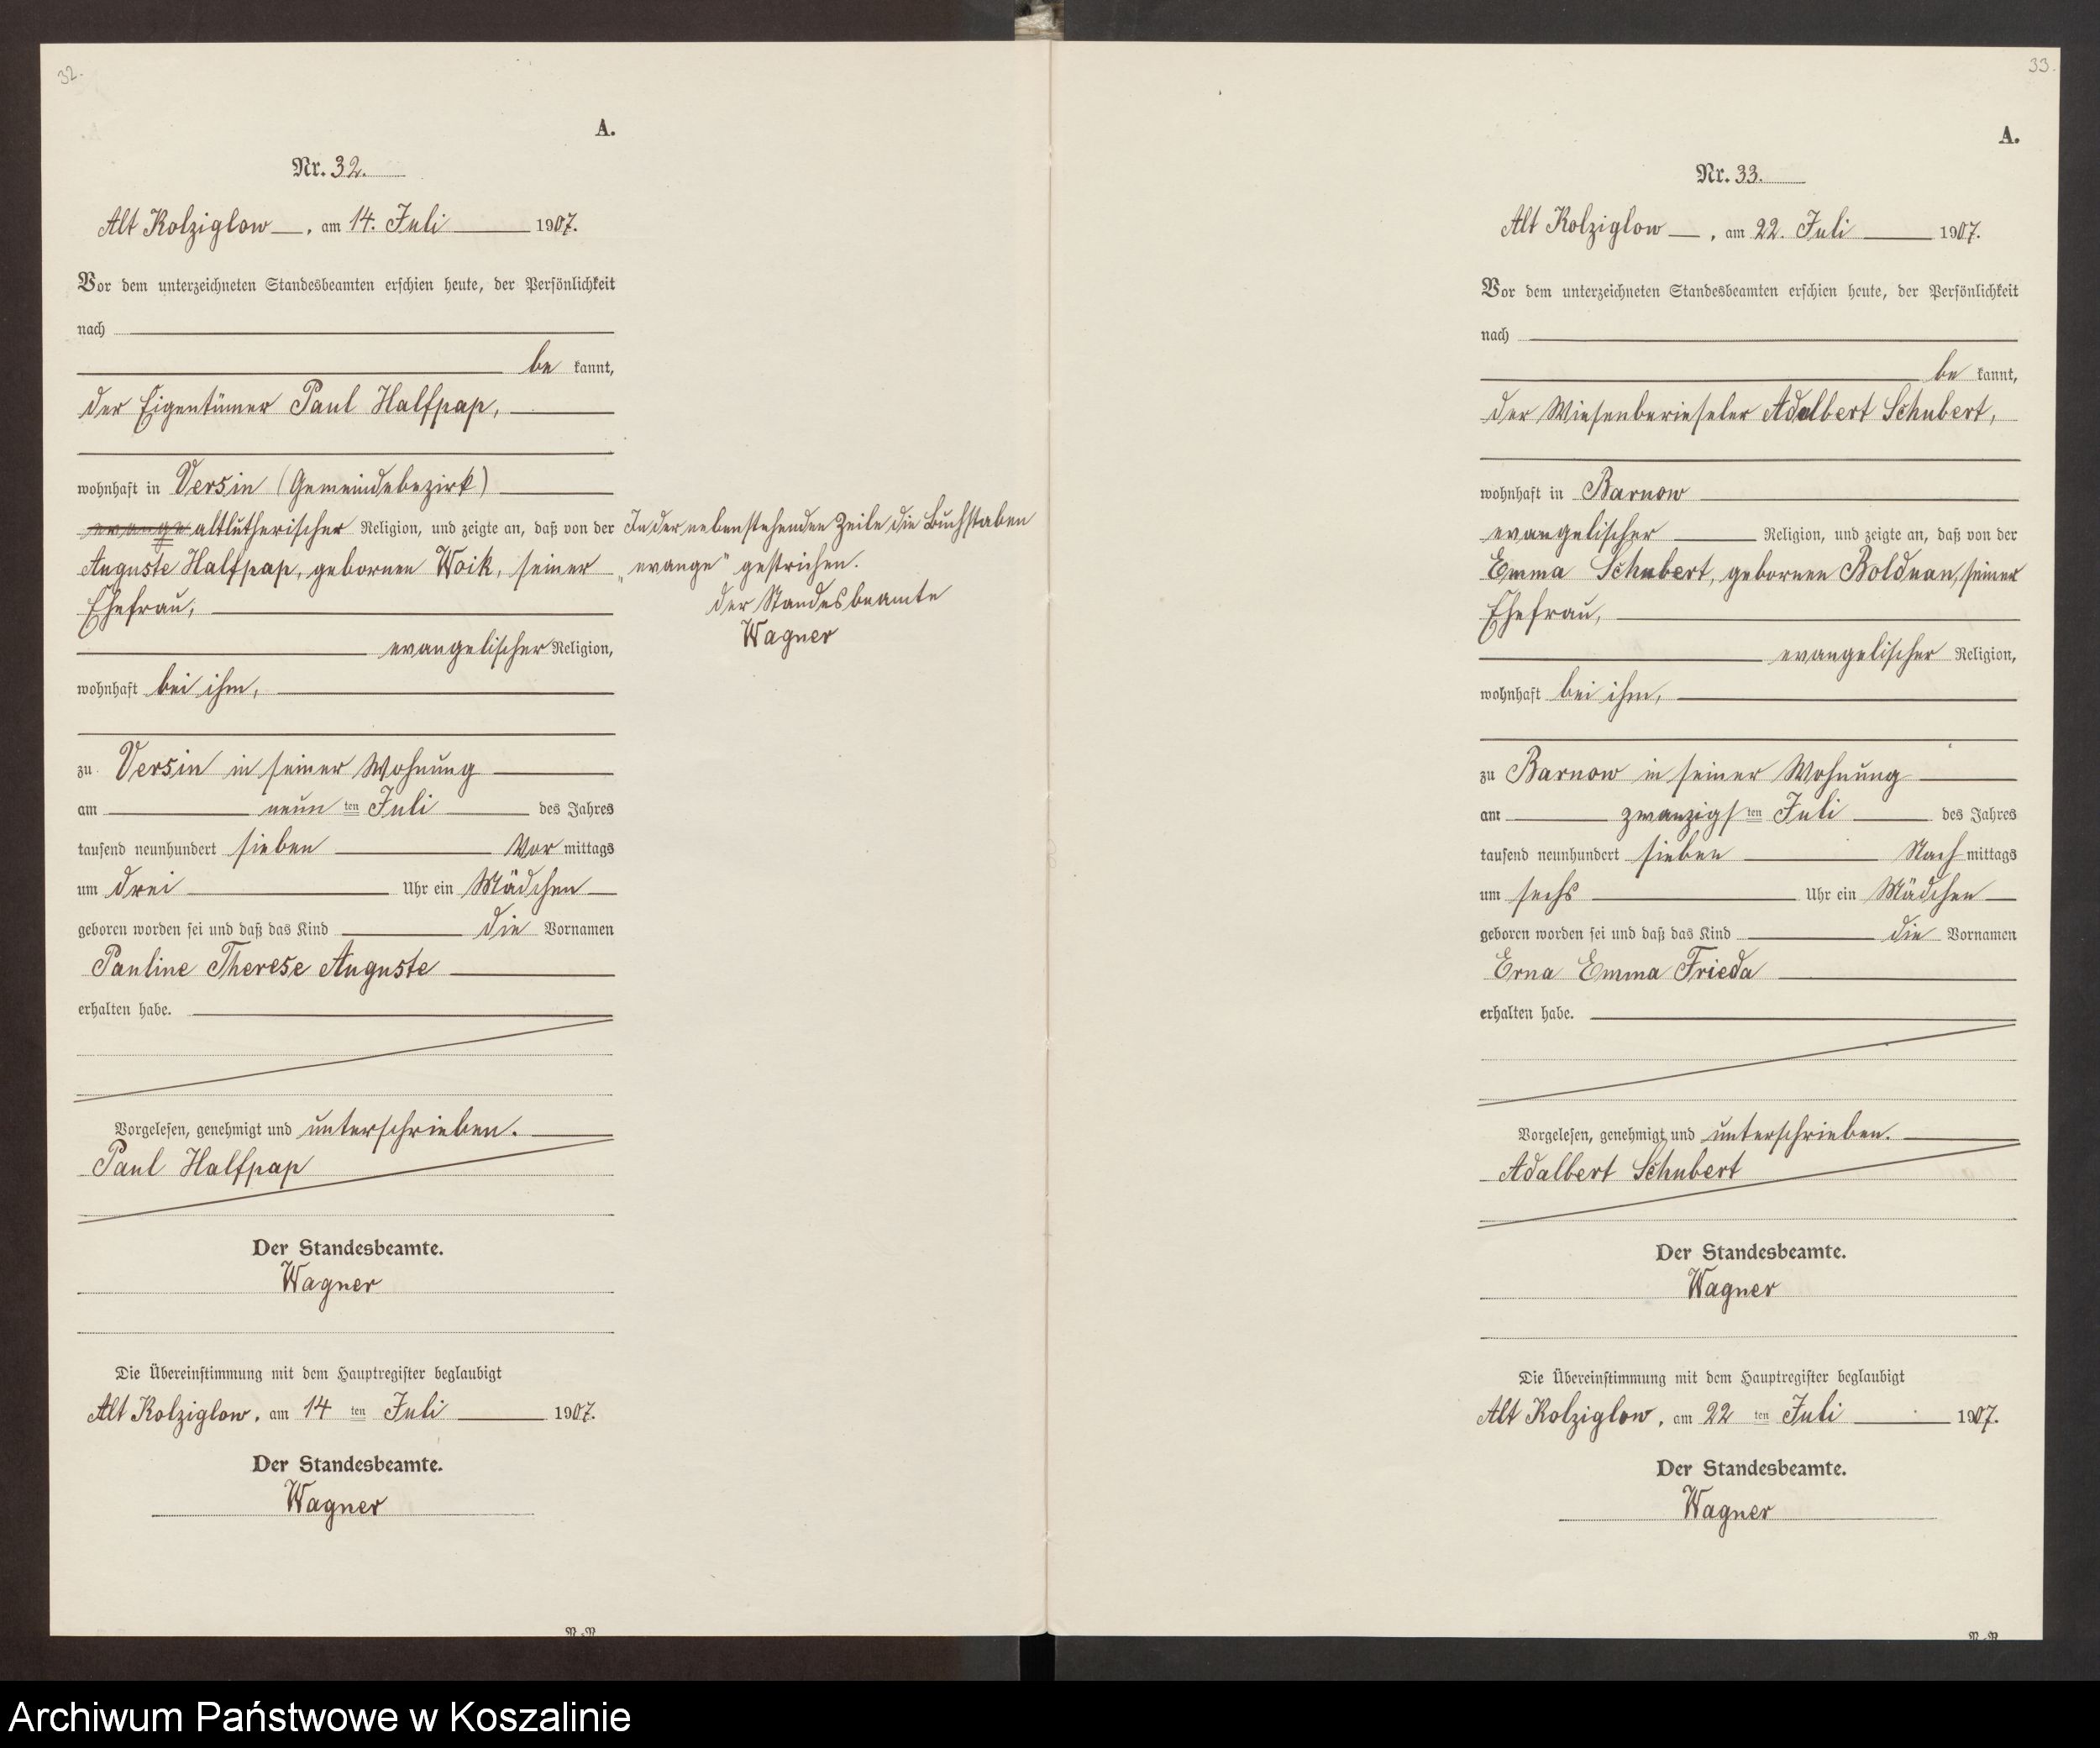 32.
A.
Nr. 32.
Alt Kolziglow, am 14. Juli 1907.
Vor dem unterzeichneten Standesbeamten erschien heute, der Persönlichkeit
nach
be kannt,
der Eigentümer Paul Halfpap,
wohnhaft in Versin (Gemeindebezirk)
evange altlutherischer Religion, und zeigte an, daß von der
Auguste Halfpap, gebornen Woik, seiner
Ehefrau,
evangelischer Religion,
wohnhaft bei ihm,
zu Versin in seiner Wohnung
am neun ten Juli des Jahres
tausend neunhundert sieben Vor mittags
um drei Uhr ein Mädchen
geboren worden sei und daß das Kind die Vornamen
Pauline Therese Auguste
erhalten habe.
Vorgelesen, genehmigt und unterschrieben.
Paul Halfpap
Der Standesbeamte.
Wagner
Die Übereinstimmung mit dem Hauptregister beglaubigt
Alt Kolziglow, am 14 ten Juli 1907.
Der Standesbeamte.
Wagner
In der nebenstehenden Zeile die Buchstaben
„evange" gestrichen.
der Standesbeamte
Wagner
33.
A.
Nr. 33.
Alt Kolziglow, am 22. Juli 1907.
Vor dem unterzeichneten Standesbeamten erschien heute, der Persönlichkeit
nach
be kannt,
der Wiesenberieseler Adalbert Schubert,
wohnhaft in Barnow
evangelischer Religion, und zeigte an, daß von der
Emma Schubert, gebornen Bolduan, seiner
Ehefrau,
evangelischer Religion,
wohnhaft bei ihm,
zu Barnow in seiner Wohnung
am zwanzigs ten Juli des Jahres
tausend neunhundert sieben Nach mittags
um sechs Uhr ein Mädchen
geboren worden sei und daß das Kind die Vornamen
Erna Emma Frieda
erhalten habe.
Vorgelesen, genehmigt und unterschrieben.
Adalbert Schubert
Der Standesbeamte.
Wagner
Die Übereinstimmung mit dem Hauptregister beglaubigt
Alt Kolziglow, am 22 ten Juli 1907.
Der Standesbeamte.
Wagner
Archiwum Państwowe w Koszalinie